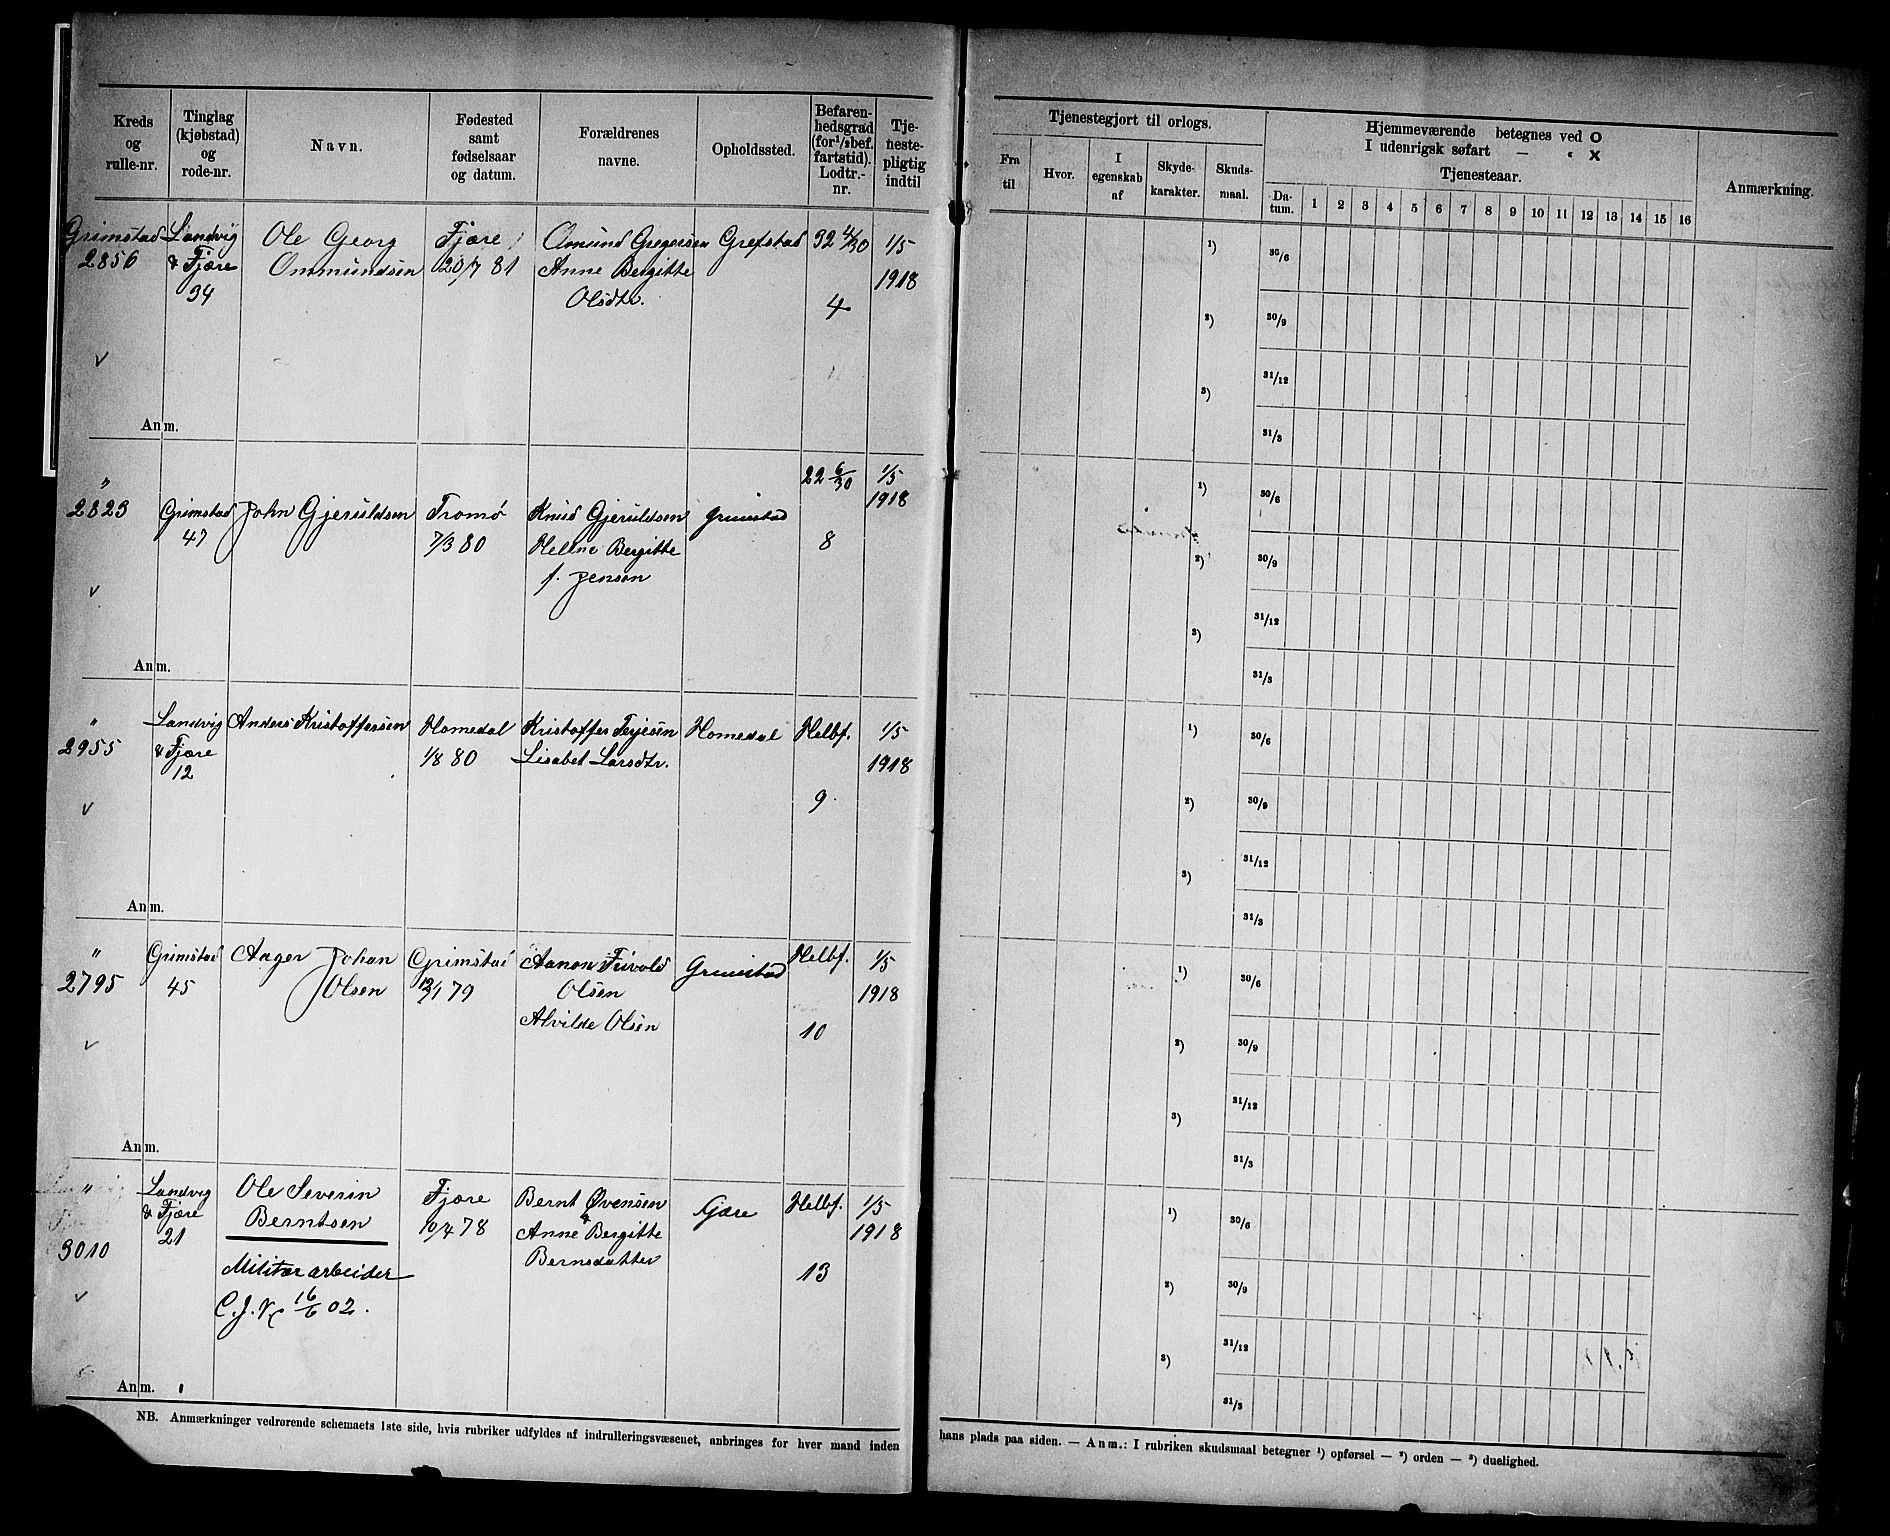 Kreds og rulle-nr.
Tinglag (kjøbstad) og rode-nr.
Navn.
Fødested samt fødselsaar og datum.
Forældrenes navne.
Opholdssted.
Befaren-hedsgrad (for 1/2 bef. fartstid). Lodtr.-nr.
Tje-neste-pligtig indtil
Grimstad 2856
Landvig & Fjære 34
Ole Georg Ommundsen
Fjære 20/7 81
Omund Gregersen
Anne Bergitte
Olsdtr.
Grefstad
32 4/30
4
1/5 1918
Anm.
" 2823
Grimstad 47
John Gjeruldsen
Tromø 7/3 80
Knud Gjeruldsen
Hellne Bergitte
f. Jensen
Grimstad
22 6/30
8
1/5 1918
Anm.
" 2955
Landvig & Fjære 12
Anders Kristoffersen
Homedal 1/8 80
Kristoffer Terjesen
Lisabet Larsdtr.
Homedal
Helbf.
9
1/5 1918
Anm.
" 2795
Grimstad 45
Aager Johan Olsen
Grimstad 12/1 79
Aanon Fuvold
Olsen
Alvilde Olsen
Grimstad
Helbf.
10
1/5 1918
Anm.
" 3010
Landvig & Fjære 21
Ole Severin
Berntsen
Militær arbeider
Fjære 10/4 78
Bernt Øvensen
Anne Bergitte
Bernsdatter
Fjære
Helbf.
13
1/5 1918
Anm.
NB. Anmærkninger vedrørende schemaets 1ste side, hvis rubriker udfyldes af indrulleringsvæsenet, anbringes for hver mand inden
Tjenestegjort til orlogs.
Fra til
Hvor.
I egenskab af
Skyde-karakter.
Skuds-maal.
Hjemmeværende betegnes ved O
I udenrigsk søfart — " X
Tjenesteaar.
Da-tum. 1 2 3 4 5 6 7 8 9 10 11 12 13 14 15 16
Anmærkning.
1) 30/6
2) 30/9
3) 31/12
31/3
1) 30/6
2) 30/9
3) 31/12
31/3
1) 30/6
2) 30/9
3) 31/12
31/3
1) 30/6
2) 30/9
3) 31/12
31/3
1) 30/6
2) 30/9
3) 31/12
31/3
hans plads paa siden. — Anm.: I rubriken skudsmaal betegner 1) opførsel — 2) orden — 3) duelighed.